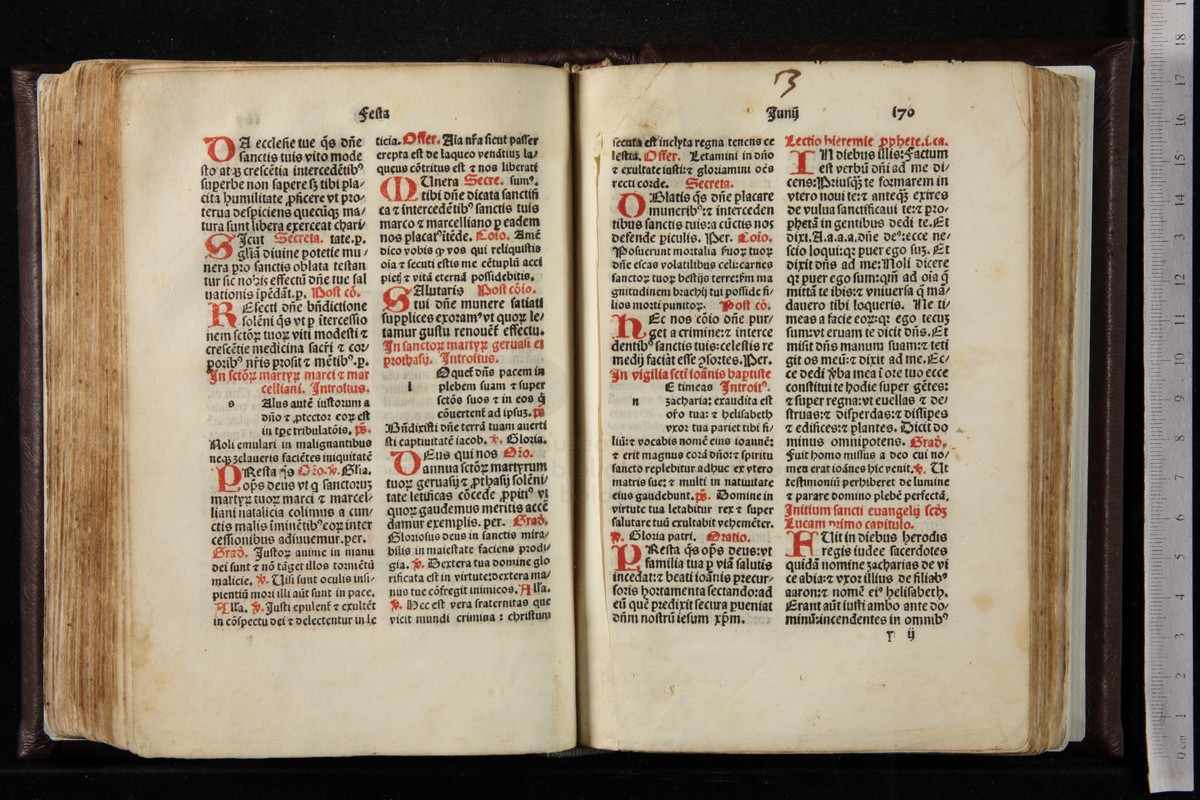 Festa
DA ecclesie tue q̄s dn̄e
sanctis tuis vito mode
sto atqꝫ crescētia intercedētibꝰ
superbe non sapere sꝫ tibi pla⸗
cita humilitate ꝓficere vt pro⸗
terua despiciens quecūqꝫ ma⸗
tura sunt libera exerceat chari⸗
SIcut Secreta. tate.p.
gl̄ia diuine potētie mu⸗
nera pro sanctis oblata testan
tur sic nobis effectū dn̄e tue sal
uationis ipēdāt.p. Post cō.
REfecti dn̄e bn̄dictione
solēni q̄s vt ꝑ itercessio
nem sctōꝝ tuoꝝ viti modesti ⁊
crescētie medicina sacri ⁊ cor⸗
poribꝰ nr̄is prosit ⁊ mētibꝰ.p.
In sctōꝝ martyꝝ marci ⁊ mar
celliani. Introitus.
s Alus autē iustorum a
dn̄o ⁊ ꝓtector eoꝝ est
in tp̄e tribulatōis. ps.
Noli emulari in malignantibus
neqꝫ zelaueris faciētes iniquitatē
PResta q̄s Oro. v. Gl̄ia.
op̄s deus vt q sanctorum
martyꝝ tuoꝝ marci ⁊ marcel⸗
liani natalicia colimus a cun⸗
ctis malis iminētibꝰ eoꝝ inter
cessionibus adiuuemur.per.
Grad. Iustoꝝ anime in manu
dei sunt ⁊ nō tāget illos tormētū
malicie. v. Visi sunt oculis insi⸗
pientiū mori illi aūt sunt in pace.
All'a. v. Iusti epulent̄ ⁊ exultēt
in cōspectu dei ⁊ delectentur in le
ticia. Offer. Aīa nr̄a sicut passer
erepta est de laqueo venātiū la⸗
queus cōtritus est ⁊ nos liberati
MUnera Secre. sumꝰ.
tibi dn̄e dicata sanctifi
ca ⁊ intercedētibꝰ sanctis tuis
marco ⁊ marcelliano ꝑ eadem
nos placatꝰ itēde. Coīo. Amē
dico vobis qꝫ vos qui reliquistis
oīa ⁊ secuti estis me cētuplū acci
pietꝭ ⁊ vitā eternā possidebitis.
SAlutaris Post cōio.
tui dn̄e munere satiati
supplices exoramꝰ vt quoꝝ le⸗
tamur gustu renouet̄ effectu.
In sanctoꝝ martyꝝ geruasi et
prothasij. Introitus.
l Oquet̄ dn̄s pacem in
plebem suam ⁊ super
sctōs suos ⁊ in eos q̄
cōuertent̄ ad ipsuꝫ. ps
Bn̄dixisti dn̄e terrā tuam auerti
sti captiuitatē iacob. v. Gloria.
DEus qui nos Oro.
annua sctōꝝ martyrum
tuoꝝ geruasij ⁊ ꝓthasij solēni⸗
tate letificas cōcede ꝓpitiꝰ vt
quoꝝ gaudemus meritis accē
damur exemplis. per. Grad.
Gloriosus deus in sanctis mira⸗
bilis in maiestate faciens prodi⸗
gia. v. Dextera tua domine glo
rificata est in virtute:dextera ma⸗
nus tue cōfregit inimicos. All'a.
v. Hec est vera fraternitas que
vicit mundi crimina : christum
Junij 170
secuta est inclyta regna tenens ce
lestia. Offer. Letamini in dn̄o
⁊ exultate iusti:⁊ gloriamini oēs
recti corde. Secreta.
OBlatis q̄s dn̄e placare
muneribꝰ:⁊ interceden
tibus sanctis tuis:a cūctis nos
defende piculis. Per. Coīo.
Posuerunt mortalia ẜuoꝝ tuoꝝ
dn̄e escas volatilibus celi:carnes
sanctoꝝ tuoꝝ bestijs terre:ẜm ma
gnitudinem brachij tui posside fi⸗
lios morti punitoꝝ. Post cō.
HEc nos cōio dn̄e pur⸗
get a crimine:⁊ interce
dentibꝰ sanctis tuis:celestis re
medij faciāt esse ꝯsortes.Per.
In vigilia scti ioānis baptiste
E timeas Introitꝰ.
n zacharia: exaudita est
ofo tua: ⁊ helisabeth
vxor tua pariet tibi fi⸗
liū:⁊ vocabis nomē eius ioannē:
⁊ erit magnus corā dn̄o:⁊ spiritu
sancto replebitur adhuc ex vtero
matris sue: ⁊ multi in natiuitate
eius gaudebunt. ps. Domine in
virtute tua letabitur rex ⁊ super
salutare tuū exultabit vehemēter.
v. Gloria patri. Oratio.
PResta q̄s op̄s deus:vt
familia tua ꝑ viā salutis
incedat:⁊ beati ioānis p̄cur⸗
soris hortamenta sectando:ad
eū quē p̄dixit secura pueniat
dn̄m nostrū iesum xp̄m.
Lectio hieremie ꝓphete.i.ca.
IN diebus illis:Factum
est verbū dn̄i ad me di⸗
cens:Priusqꝫ te formarem in
vtero noui te:⁊ anteqꝫ exires
de vulua sanctificaui te:⁊ pro⸗
phetā in gentibus dedi te.Et
dixi.A.a.a.dn̄e deꝰ:ecce ne⸗
scio loqui:qꝛ puer ego suꝫ. Et
dixit dn̄s ad me:Noli dicere
qꝛ puer ego sum:qm̄ ad oīa q̄
mittā te ibis:⁊ vniuersa q̄ mā⸗
dauero tibi loqueris. Ne ti⸗
meas a facie eoꝝ:qꝛ ego tecuꝫ
sum:vt eruam te dicit dn̄s.Et
misit dn̄s manum suam:⁊ teti
git os meū:⁊ dixit ad me.Ec⸗
ce dedi ꝟba mea ī ore tuo ecce
constitui te hodie super gētes:
⁊ super regna:vt euellas ⁊ de⸗
struas:⁊ disperdas:⁊ dissipes
⁊ edifices:⁊ plantes. Dicit do
minus omnipotens. Grad.
Fuit homo missus a deo cui no⸗
men erat ioānes hic venit. v. Ut
testimoniū perhiberet de lumine
⁊ parare domino plebē perfectā.
Initium sancti euangelij scd̄ꝫ
Lucam primo capitulo.
FUit in diebus herodis
regis iudee sacerdotes
quidā nomine zacharias de vi
ce abia:⁊ vxor illius de filiabꝰ
aaron:⁊ nomē eiꝰ helisabeth.
Erant aūt iusti ambo ante do⸗
minū:incendentes in omnibꝰ
r ij